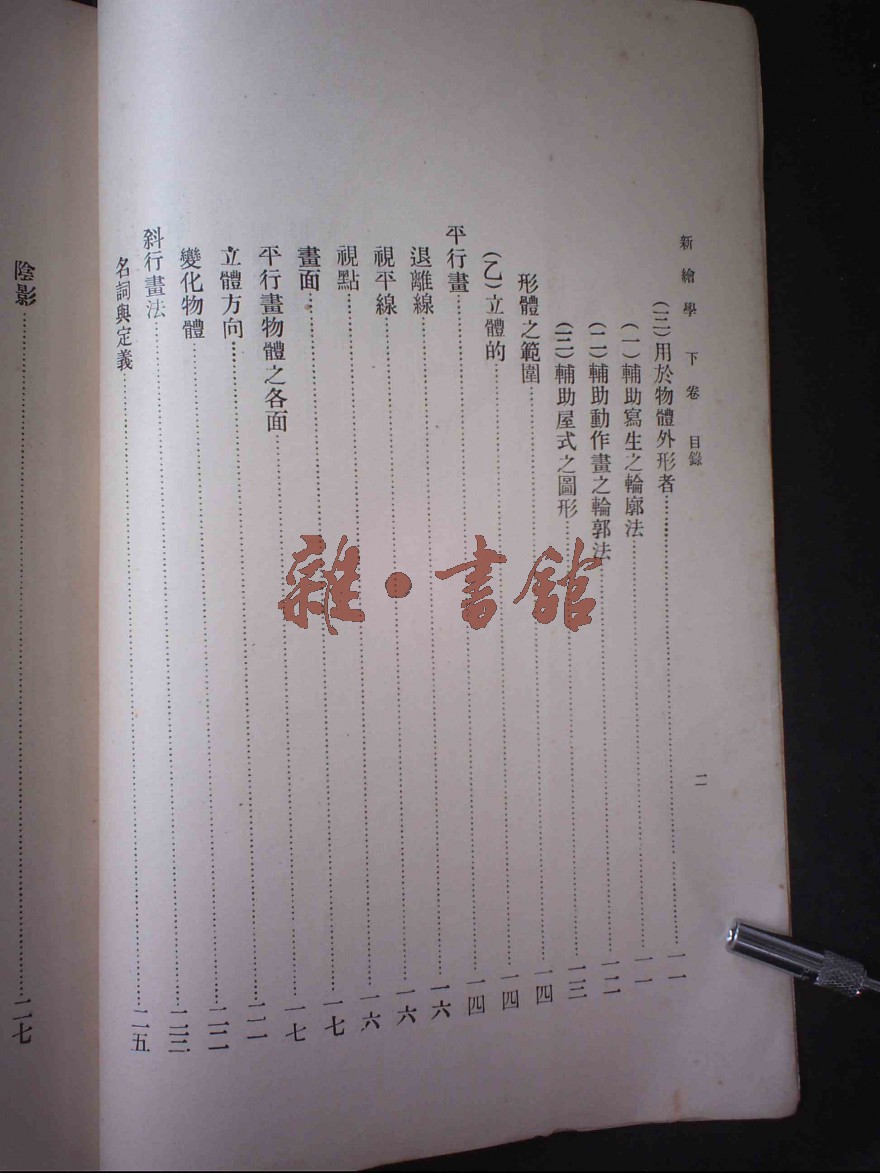 新繪學 下卷 目錄 二
(三)用於物體外形者……一一
(一)輔助寫生之輪廓法……一一
(二)輔助動作畫之輪郭法……一二
(三)輔助屋式之圖形……一三
形體之範圍……一四
(乙)立體的……一四
平行畫……一四
退離線……一六
視平線……一六
視點……一六
畫面……一七
平行畫物體之各面……一七
立體方向……二一
變化物體……二二
斜行畫法……二三
名詞與定義……二五
陰影……二七
雜·書館